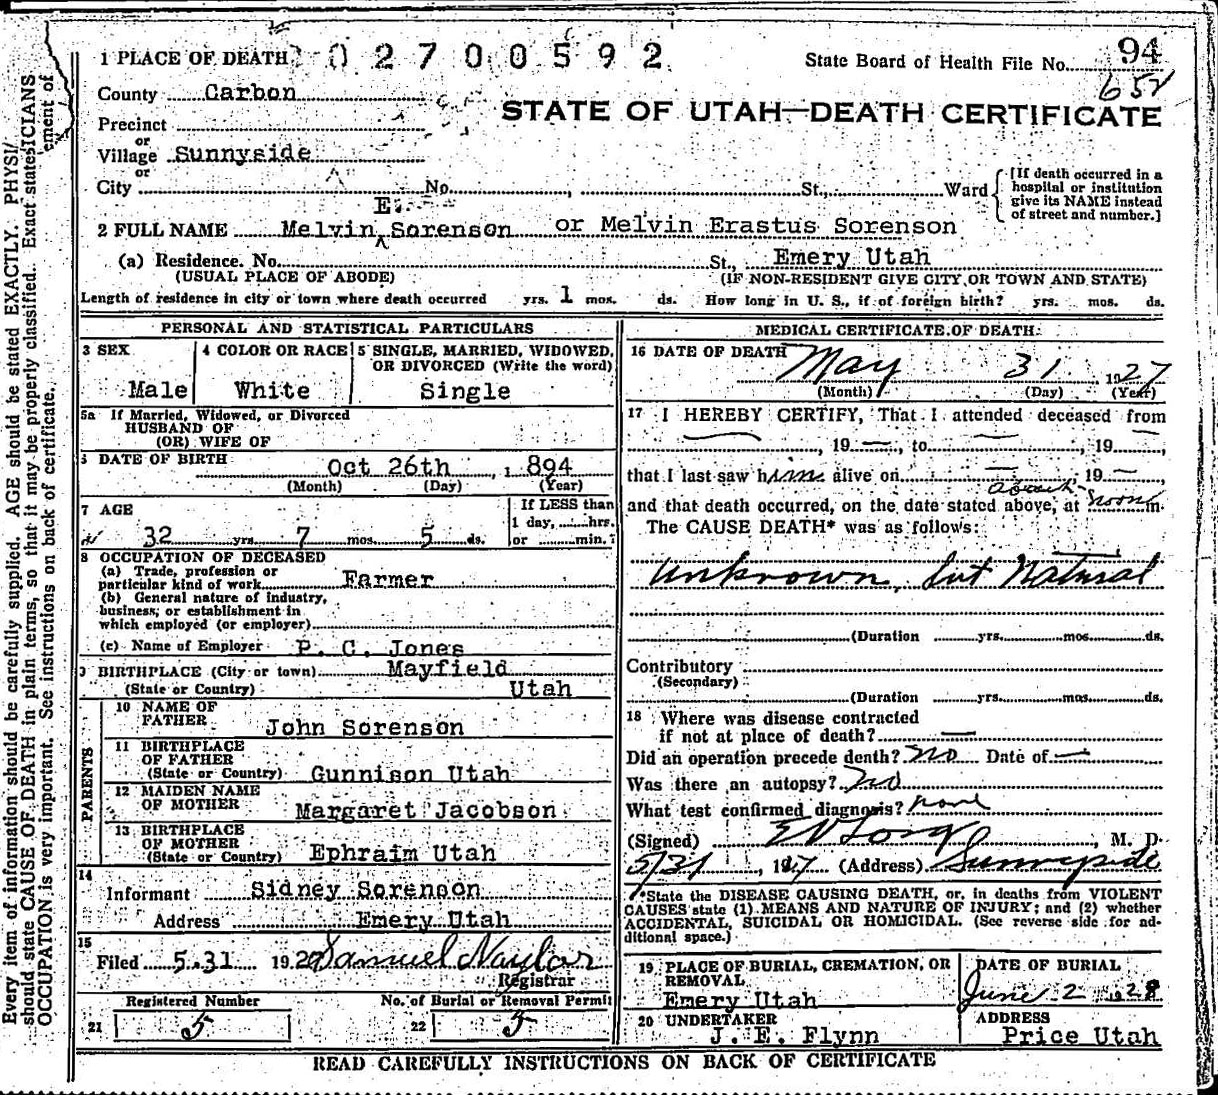 1 PLACE OF DEATH 02700592
State Board of Health File No. 94
652
County Carbon
STATE OF UTAH—DEATH CERTIFICATE
Precinct
or
Village Sunnyside
or
City No. , St., Ward
[If death occurred in a hospital or institution give its NAME instead of street and number.]
E.
2 FULL NAME Melvin Sorenson or Melvin Erastus Sorenson
(a) Residence. No. St., Emery Utah
(USUAL PLACE OF ABODE) (IF NON-RESIDENT GIVE CITY OR TOWN AND STATE)
Length of residence in city or town where death occurred yrs. 1 mos. ds. How long in U. S., if of foreign birth? yrs. mos. ds.
PERSONAL AND STATISTICAL PARTICULARS
3 SEX
Male
4 COLOR OR RACE
White
5 SINGLE, MARRIED, WIDOWED,
OR DIVORCED (Write the word)
Single
5a If Married, Widowed, or Divorced
HUSBAND OF
(OR) WIFE OF
DATE OF BIRTH
Oct 26th , 894
(Month) (Day) (Year)
7 AGE
32 yrs 7 mos. 5 ds.
If LESS than
1 day, hrs.
or min.
8 OCCUPATION OF DECEASED
(a) Trade, profession or
particular kind of work Farmer
(b) General nature of industry,
business, or establishment in
which employed (or employer)
(c) Name of Employer P. C. Jones
BIRTHPLACE (City or town) Mayfield
(State or Country) Utah
PARENTS
10 NAME OF
FATHER
John Sorenson
11 BIRTHPLACE
OF FATHER
(State or Country) Gunnison Utah
12 MAIDEN NAME
OF MOTHER
Margaret Jacobson
13 BIRTHPLACE
OF MOTHER
(State or Country) Ephraim Utah
14
Informant Sidney Sorenson
Address Emery Utah
15
Filed 5.31 1927 Samuel Naylor
Registrar
Registered Number
21 5
No. of Burial or Removal Permit
22 5
MEDICAL CERTIFICATE OF DEATH
16 DATE OF DEATH
May 31 1927
(Month) (Day) (Year)
17 I HEREBY CERTIFY, That I attended deceased from
— , 19 — , to — , 19 — ,
that I last saw him alive on — , 19 —
and that death occurred, on the date stated above, at about noon m.
The CAUSE DEATH* was as follows:
Unknown, but Natural
(Duration yrs. mos. ds.
Contributory
(Secondary)
(Duration yrs. mos. ds.
18 Where was disease contracted
if not at place of death? —
Did an operation precede death? no Date of —
Was there an autopsy? no
What test confirmed diagnosis? none
(Signed) , M. D.
5/31, 1927 (Address) Sunnyside
*State the DISEASE CAUSING DEATH, or, in deaths from VIOLENT
CAUSES state (1) MEANS AND NATURE OF INJURY; and (2) whether
ACCIDENTAL, SUICIDAL OR HOMICIDAL. (See reverse side for ad-
ditional space.)
19 PLACE OF BURIAL, CREMATION, OR
REMOVAL
Emery Utah
DATE OF BURIAL
June 2 1928
20 UNDERTAKER
J. E. Flynn
ADDRESS
Price Utah
READ CAREFULLY INSTRUCTIONS ON BACK OF CERTIFICATE
Every item of information should be carefully supplied. AGE should be stated EXACTLY. PHYSI
SICIANS should state CAUSE OF DEATH in plain terms, so that it may be properly classified. Exact state
ement of OCCUPATION is very important. See instructions on back of certificate.